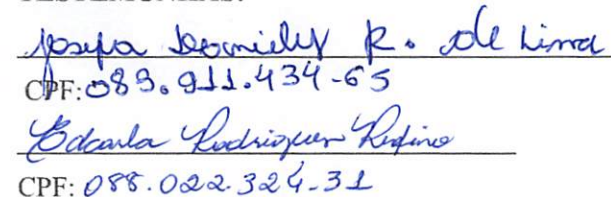 TESTEMUNHAS:
Josefa Daniely R. de Lima
CPF: 089.911.434-65
Edcarla Rodrigues Rufino
CPF: 088.022.324-31